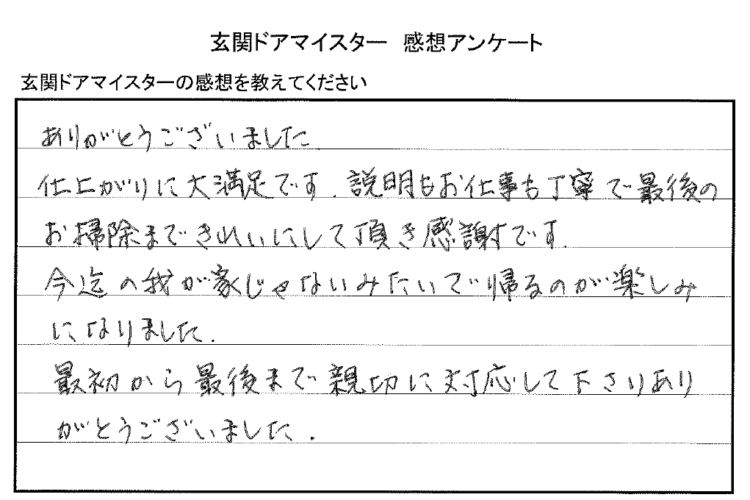 玄関ドアマイスター 感想アンケート
玄関ドアマイスターの感想を教えてください
ありがとうございました.
仕上がりに大満足です. 説明もお仕事も丁寧で最後の
お掃除まできれいにして頂き感謝です.
今迄の我が家じゃないみたいで帰るのが楽しみ
になりました.
最初から最後まで親切に対応して下さりあり
がとうございました.